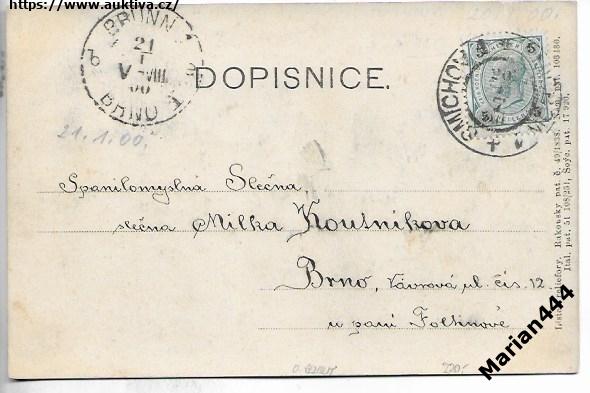 https://www.auktiva.cz/
BRÜNN
21
1
VIII
00
BRNO
20.1.00.
SMÍCHOV
5
DOPISNICE.
21.1.00.
Spanilomyslná Slečna,
slečna Milka Koutníkova
Brno, Vávrová ul. čís. 12.
u paní Foltinové
Rakousky pat. č. 49/1838.
Ital. pat. 51 108/251, Švýc. pat. 17 920.
Marian444
220,-